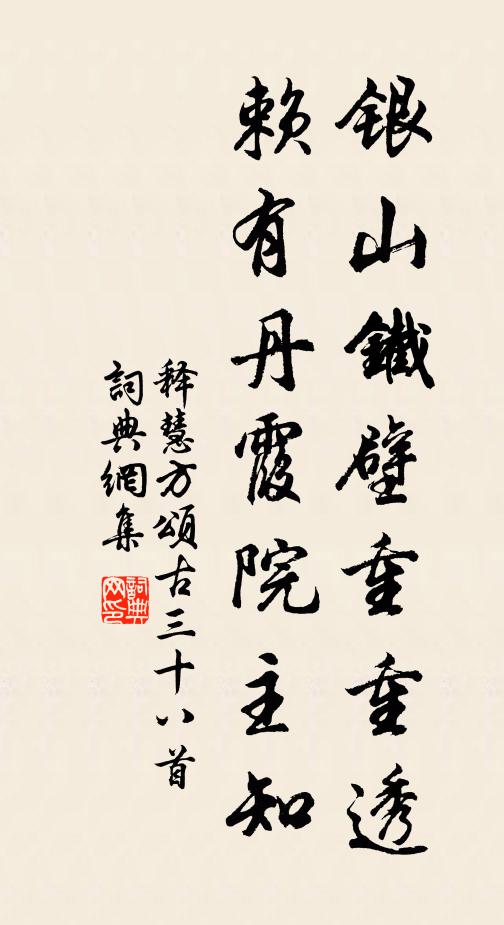 銀山鐵壁重重透
賴有丹霞院主知
释慧方頌古三十八首
詞典網集
詞典網印